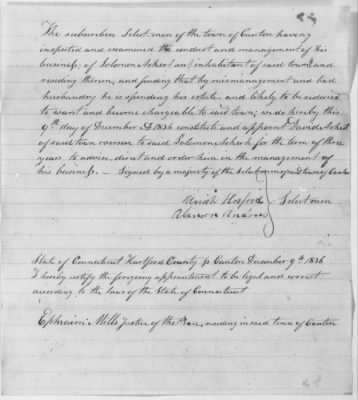 The subscribers Select men of the town of Canton having
inspected and examined the conduct and management of his
business, of Solomon Ackert an inhabitant of said town and
residing therein, and finding that by mismanagement and bad
husbandry he is spending his estate and likely to be reduced
to want and become chargeable to said town; we do hereby this
9th day of December AD 1836 constitute and appoint David Ackert
of said town overseer to said Solomon Ackert for the term of three
years to advise, direct and order him in the management of
his business. — Signed by a majority of the Selectmen of said town of Canton
Uriah Hosford
Select men
State of Connecticut Hartford County ss Canton December 9th 1836
I hereby certify the foregoing appointment to be legal and correct
according to the laws of the State of Connecticut
Ephraim Mills Justice of the Peace, residing in said town of Canton